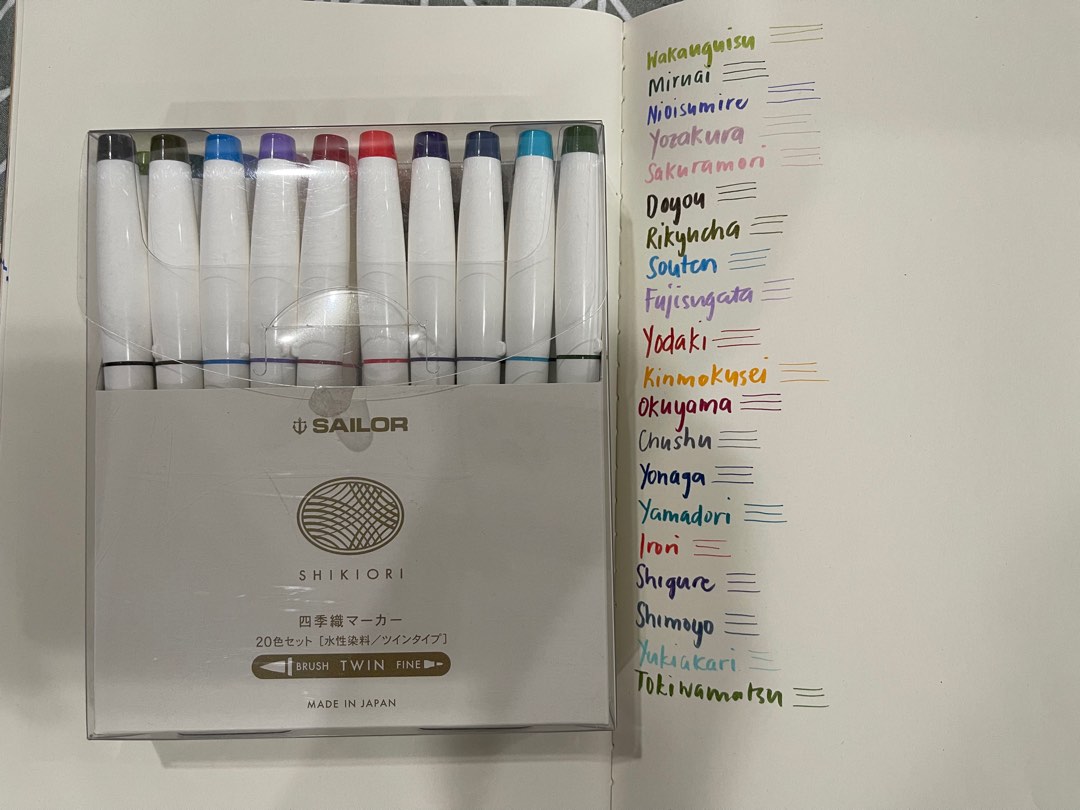 SAILOR
SHIKIORI
四季織マーカー
20色セット［水性染料／ツインタイプ］
BRUSH TWIN FINE
MADE IN JAPAN
Wakauguisu
Miruai
Nioisumire
Yozakura
Sakuramori
Doyou
Rikyucha
Souten
Fujisugata
Yodaki
Kinmokusei
Okuyama
Chushu
Yonaga
Yamadori
Irori
Shigure
Shimoyo
Yukiakari
Tokiwamatsu